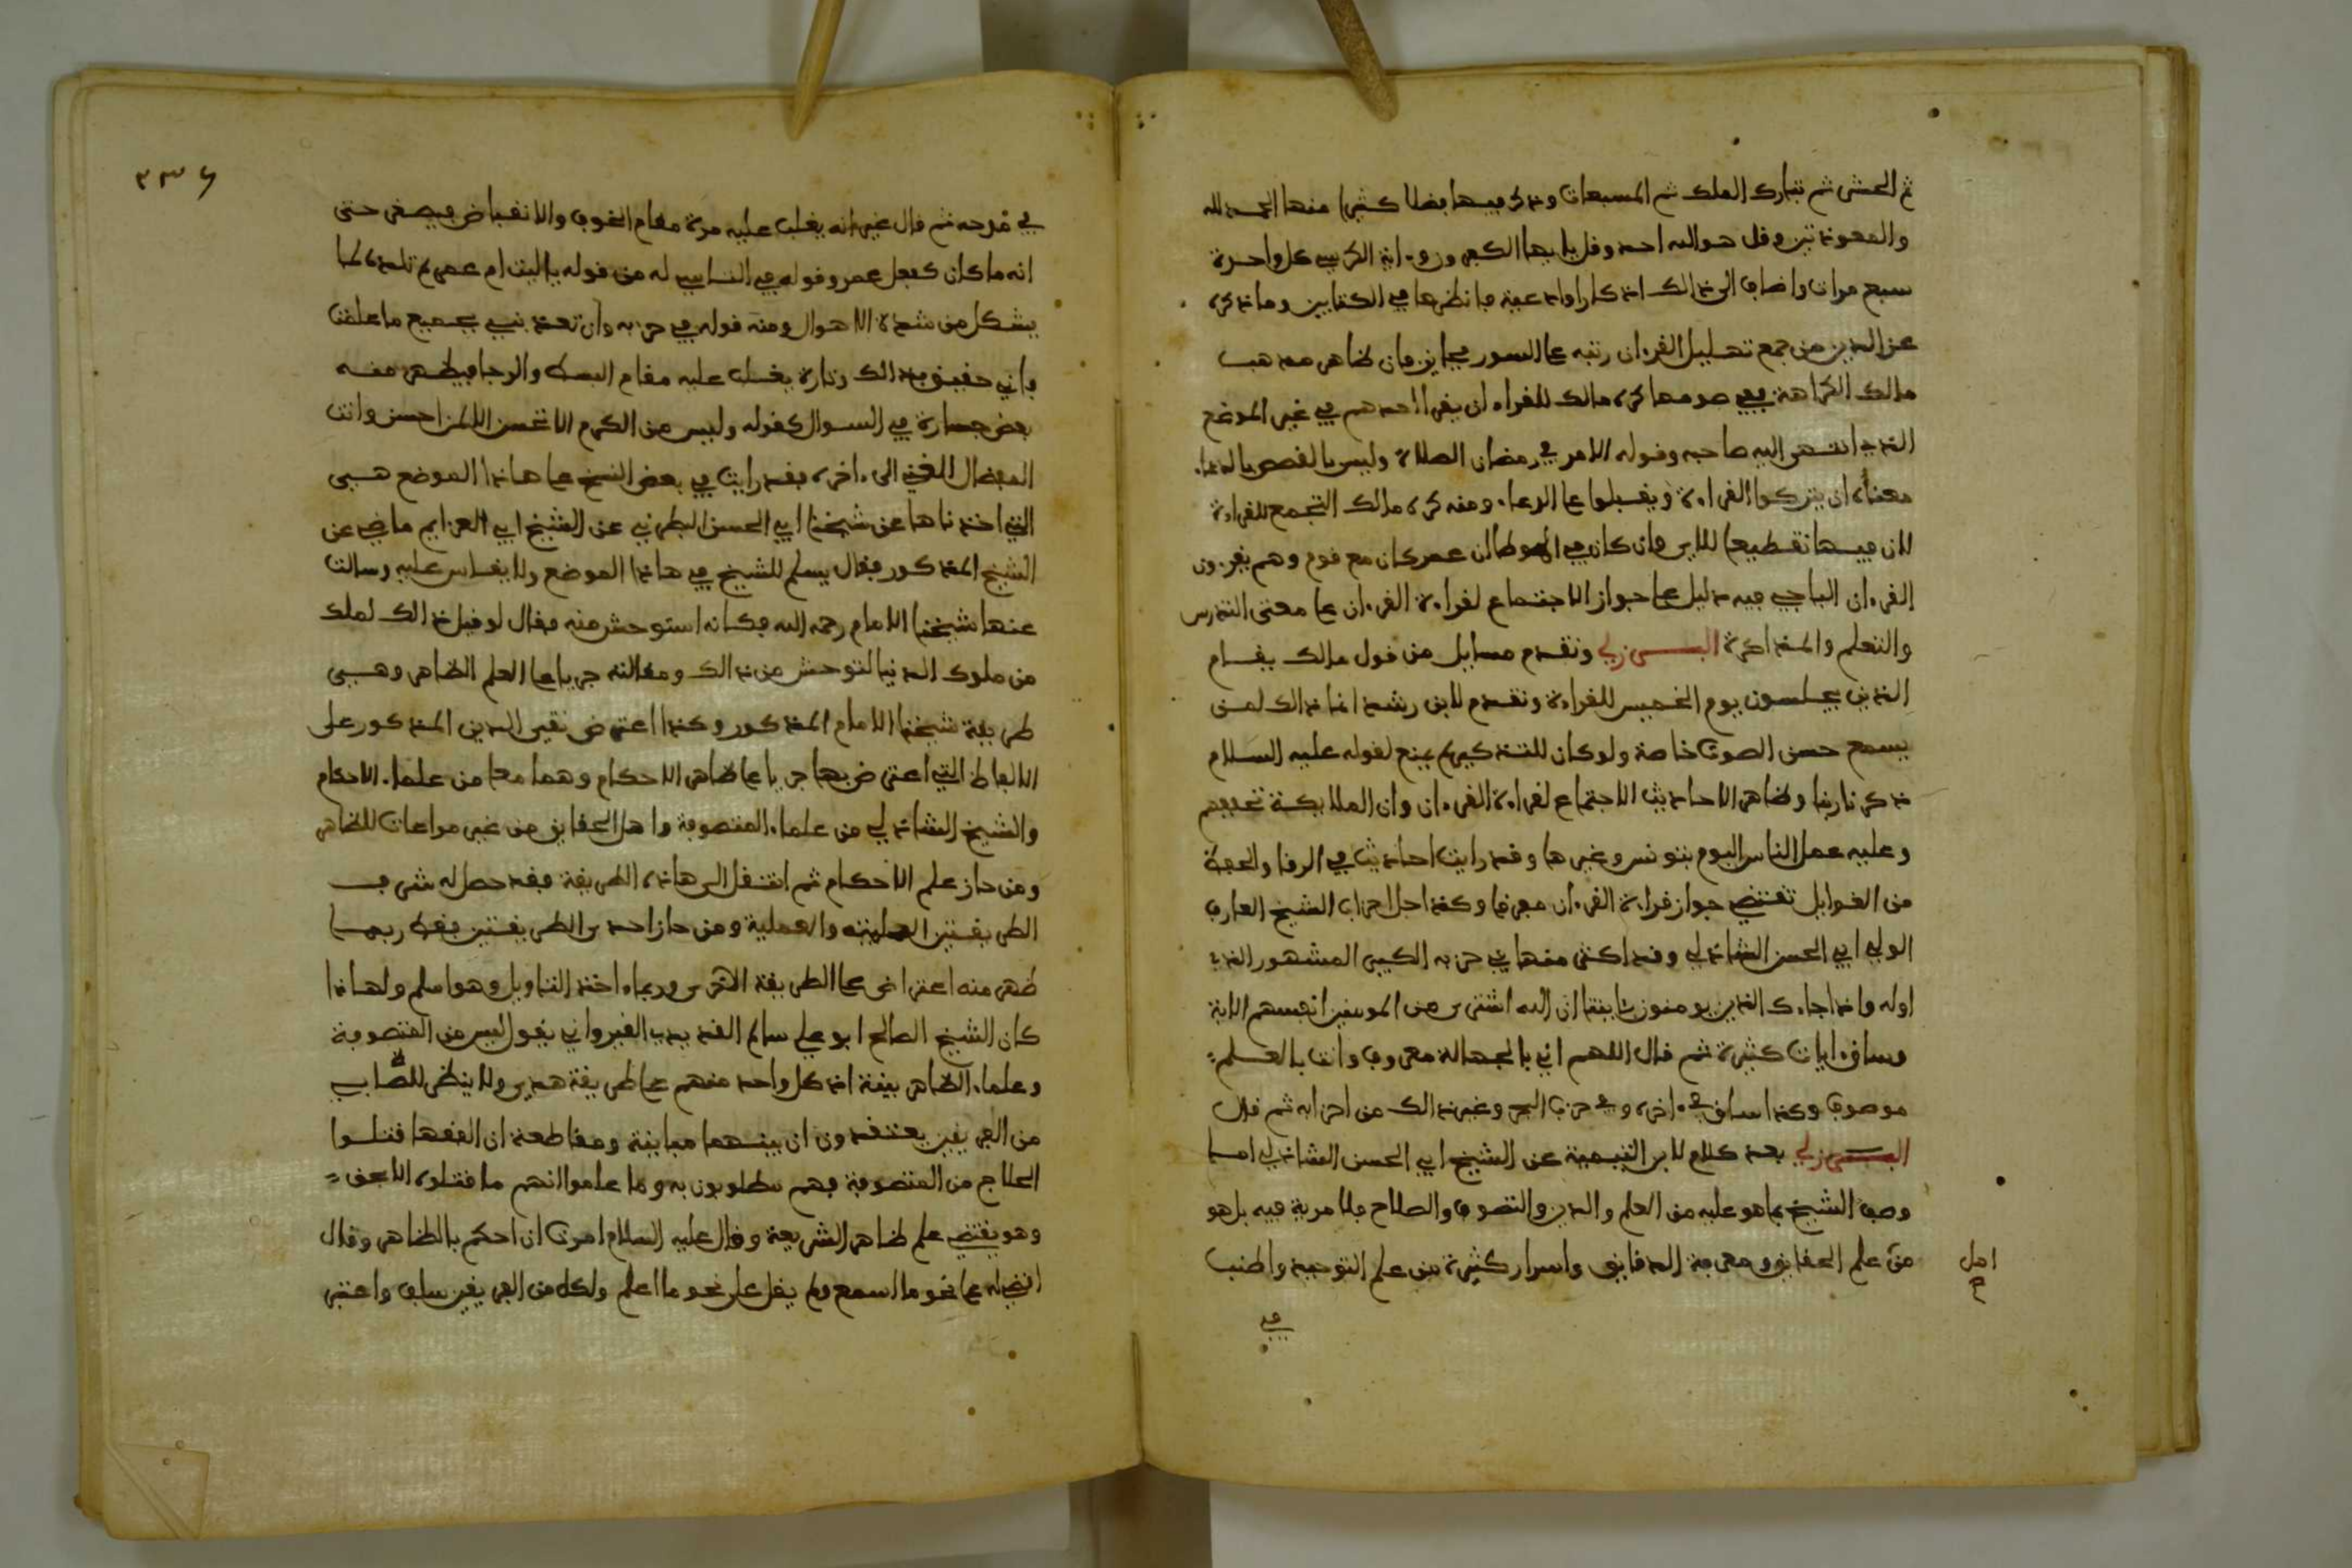 ثم الحشر ثم تبارك الملك ثم المسبعات وذكر فيها فضلا كثيرا منها الحمد لله
والمعوذتين وقل هو الله احد وقل يا ايها الكافرون واية الكرسي كل واحدة
سبع مرات واضاف الى ذالك اذكارا وادعية فانظرها في الكتابين وما ذكره
عز الدين من جمع تهليل القرءان رتبه على السور فجايز فان ظاهر مذهب
مالك الكراهة ففي صومها كره مالك للقراء ان يقرا احدهم في غير الموضع
الذي انتهى اليه صاحبه وقوله الامر في رمضان الصلاة وليس بالقصص بالدعاء
معناه ان يتركوا القراءة ويقبلوا على الدعاء ومنه كره مالك التجمع للقراءة
لان فيها تقطيعا للاي وان كان في الموطا ان عمر كان مع قوم وهم يقرءون
القرءان الباجي فيه دليل على جواز الاجتماع لقراءة القرءان على معنى التدرس
والتعلم والمذاكرة البرزلي وتقدم مسايل من قول مالك يقام
الذين يجلسون يوم الخميس للقراءة وتقدم لابن رشد انما ذالك لمن
يسمع حسن الصوت خاصة ولو كان للتذكير لم يمنع لقوله عليه السلام
ذكرنا ربنا وظاهر الاحاديث الاجتماع لقراءة القرءان وان الملايكة تحفهم
وعليه عمل الناس اليوم بتونس وغيرها وقد رايت احاديث في الرقا والحفظ
من الغوايل تقتضي جواز قراءة القرءان مفرقا وكذا جل احزاب الشيخ العارف
الولي ابي الحسن الشاذلي وقد اكثر منها في حزبه الكبير المشهور الذي
اوله واذا جاءك الذين يومنون بثايتنا ان الله اشترى من المومنين انفسهم الاية
وساق ءايات كثيرة ثم قال اللهم اني بالجهالة معروف وانت بالعلم
موصوف وكذا ساق في ءاخره وفي حزب البحر وغير ذالك من احزابه ثم قال
البرزلي بعد كلام لابن التيمية عن الشيخ ابي الحسن الشاذلي اما
وصف الشيخ بما هو عليه من العلم والدين والتصوف والصلاح فلا مرية فيه بل هو
من علم الحقايق ومعرفة الدقايق واسرار كثيرة من علم التوحيد واطنب
اهل
في
٢٣٦
في مدحه ثم قال غير انه يغلب عليه مرة مقام الخوف والانقباض فيصغر حتى
انه ما كان كفعل عمر وقوله في الناس له من قوله يا ليت ام عمر لم تلده لما
يشكل من شدة الاهوال ومنه قوله في حزبه وان تعذبني بجميع ما علمت
فاني حقيق بذالك وتارة يغلب عليه مقام البسط والرجا فيظهر منه
بعض جسارة في السوال كقوله وليس من الكرم الا تحسن الا لمن احسن وانت
المفضال الغني الى ءاخره فقد رايت في بعض النسخ على هاذا الموضع هي
التي اخذناها عن شيخنا ابي الحسن البطرني عن الشيخ ابي العزايم ماضي عن
الشيخ المذكور فقال يسلم للشيخ في هاذا الموضع ولا يقاس عليه وسالت
عنها شيخنا الامام رحمه الله فكانه استوحش منه فقال لو قيل ذالك لملك
من ملوك الدنيا لتوحش من ذالك ومقالته جريا على العلم الظاهر وهي
طريقة شيخنا الامام المذكور وكذا اعترض تقي الدين المذكور على
الالفاظ التي اعترض بها جريا على ظاهر الاحكام وهما معا من علماء الاحكام
والشيخ الشاذلي من علماء المتصوفة واهل الحقايق من غير مراعات للظاهر
ومن حاز علم الاحكام ثم انتقل الى هاذه الطريقة فقد حصل له شرف
الطريقتين العلمية والعملية ومن حاز احدى الطريقتين فقط ربما
ظهر منه اعتراض على الطريقة الاخرى وربما اخذ التاويل وهو اسلم ولهاذا
كان الشيخ الصالح ابو علي سالم القديدي القيرواني يقول ليس من المتصوفة
وعلماء الظاهر بينة اذ كل واحد منهم على طريقة هدى ولا ينظر للصاب
من الفريقين يعتقدون ان بينهما مباينة ومقاطعة ان الفقها قتلوا
الحلاج من المتصوفة فهم مطلوبون به وما علموا انهم ما قتلوه الا بحق
وهو يقتضي علم ظاهر الشريعة وقال عليه السلام امرت ان احكم بالظاهر وقال
اقضي له على نحو ما اسمع ولم يقل على نحو ما اعلم ولكل من الفريقين سلف واعتبر